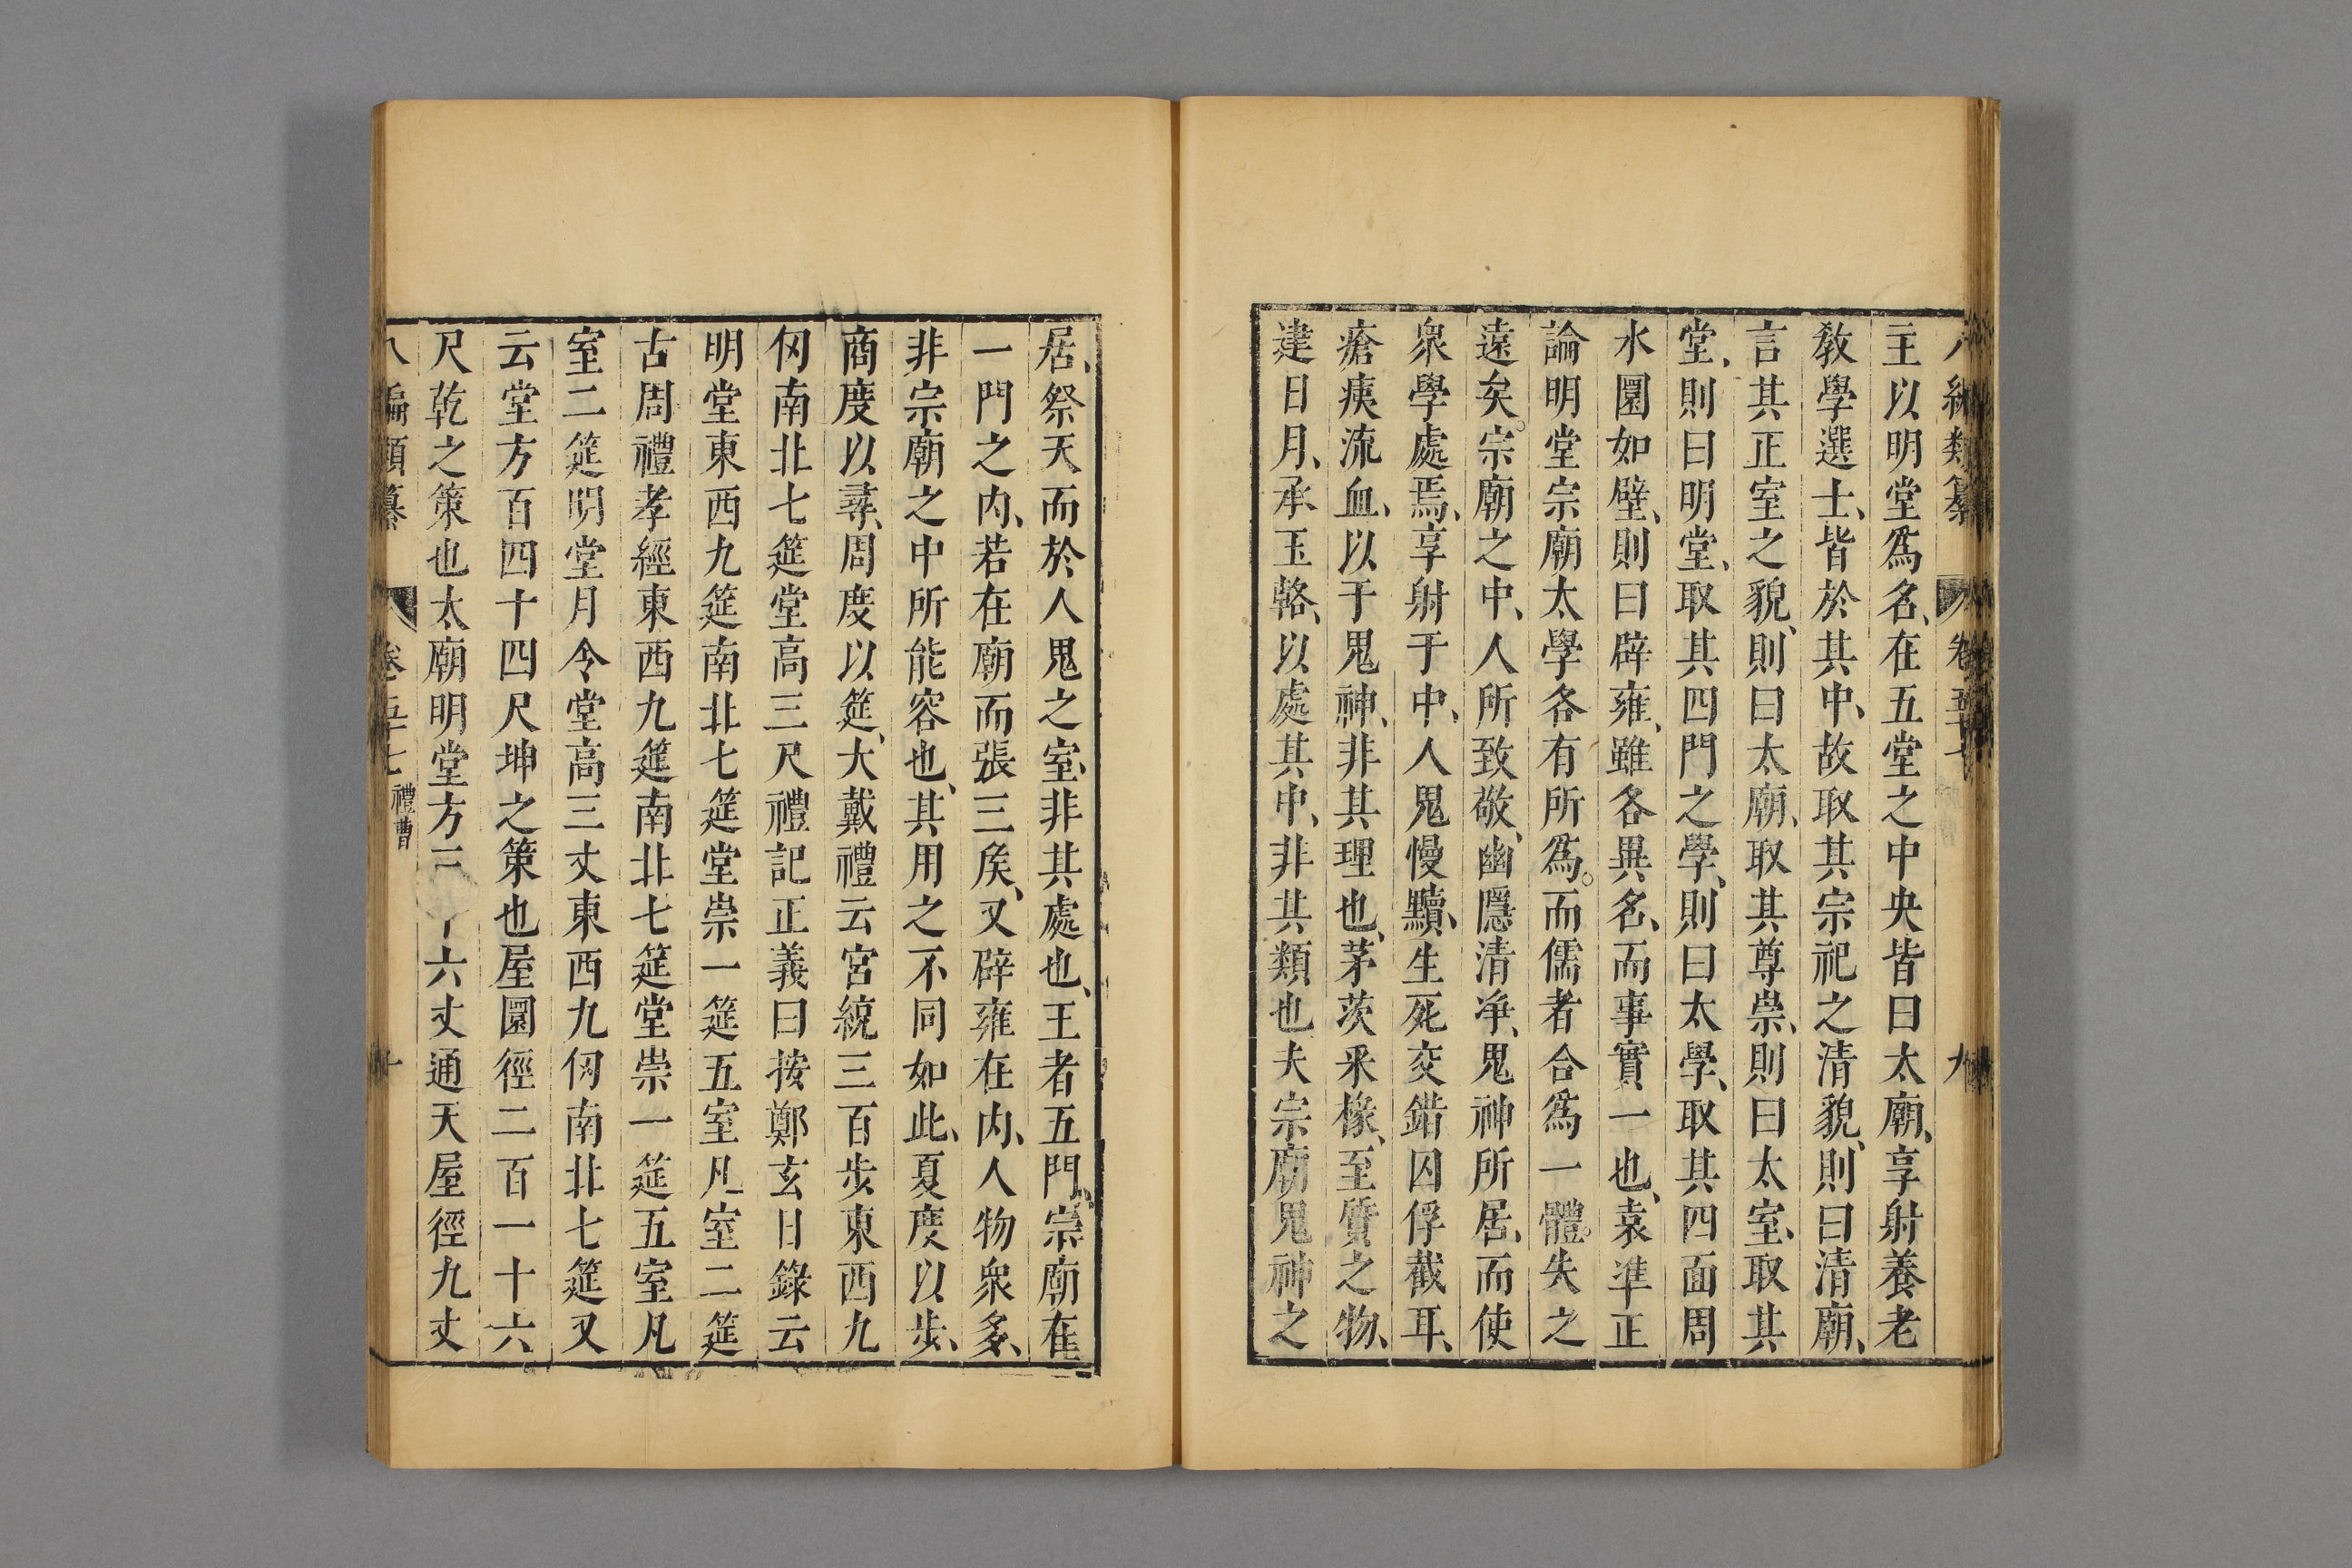 八編類纂 卷五十七 九
主以明堂爲名、在五堂之中央皆曰太廟、享射養老
敎學選士、皆於其中、故取其宗祀之清貌、則曰清廟、
言其正室之貌、則曰太廟、取其尊崇、則曰太室、取其
堂、則曰明堂、取其四門之學、則曰太學、取其四面周
水圜如壁、則曰辟雍、雖各異名、而事實一也、袁準正
論明堂宗廟太學各有所爲。而儒者合爲一體。失之
遠矣。宗廟之中、人所致敬、幽隱清凈、鬼神所居、而使
衆學處焉、享射于中、人鬼慢黷、生死交錯囚俘截耳、
瘡痍流血、以于鬼神、非其理也、茅茨釆椽、至質之物、
建日月、承玉輅、以處其中、非其類也夫宗廟鬼神之
居、祭天而於人鬼之室、非其處也、王者五門、宗廟在
一門之内、若在廟而張三矦、又辟雍在内、人物衆多、
非宗廟之中所能容也、其用之不同如此、夏度以步、
商度以尋、周度以筵、大戴禮云宮統三百步東西九
仞南北七筵堂高三尺禮記正義曰按鄭玄日錄云
明堂東西九筵南北七筵堂崇一筵五室凡室二筵
古周禮孝經東西九筵南北七筵堂崇一筵五室凡
室二筵明堂月令堂高三丈東西九仞南北七筵又
云堂方百四十四尺坤之策也屋圜徑二百一十六
尺乾之策也太廟明堂方三六丈通天屋徑九丈
八編類纂 卷五十七 禮曹 十